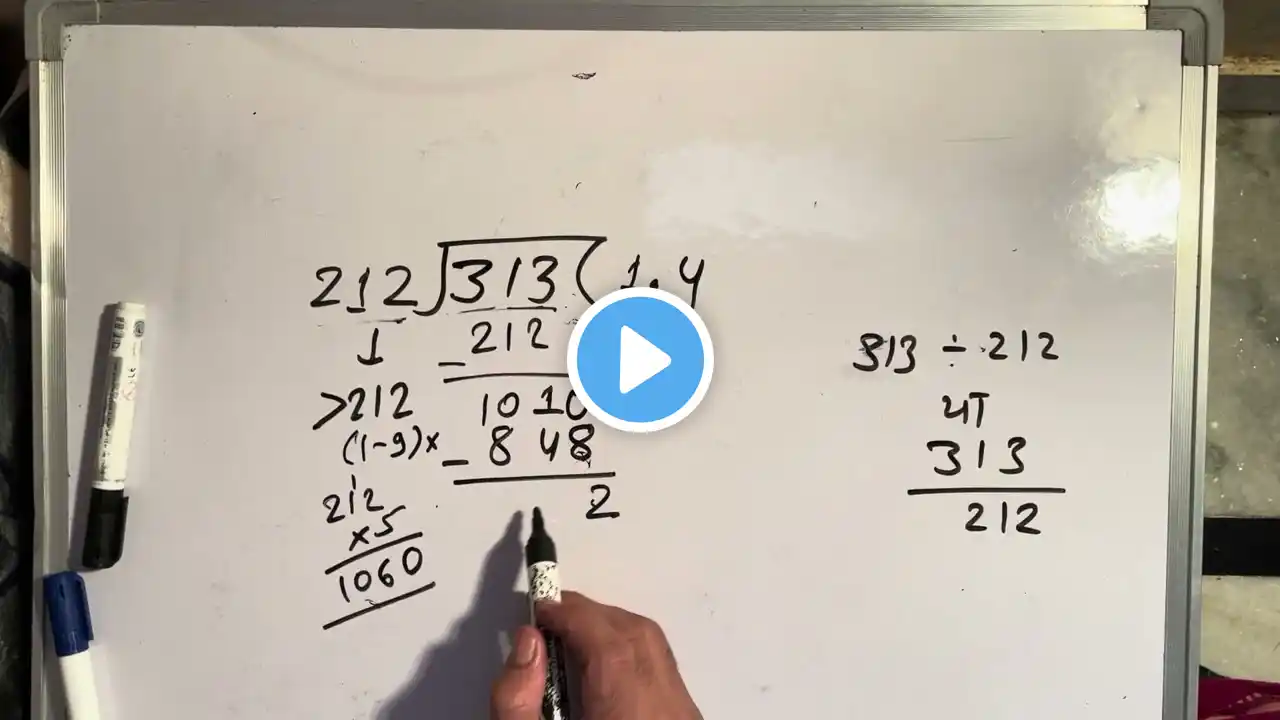 212)313(1.4
- 212
1010
- 848
2
↓
>212
(1-9)×
212
×5
1060
313 ÷ 212
या
313
212